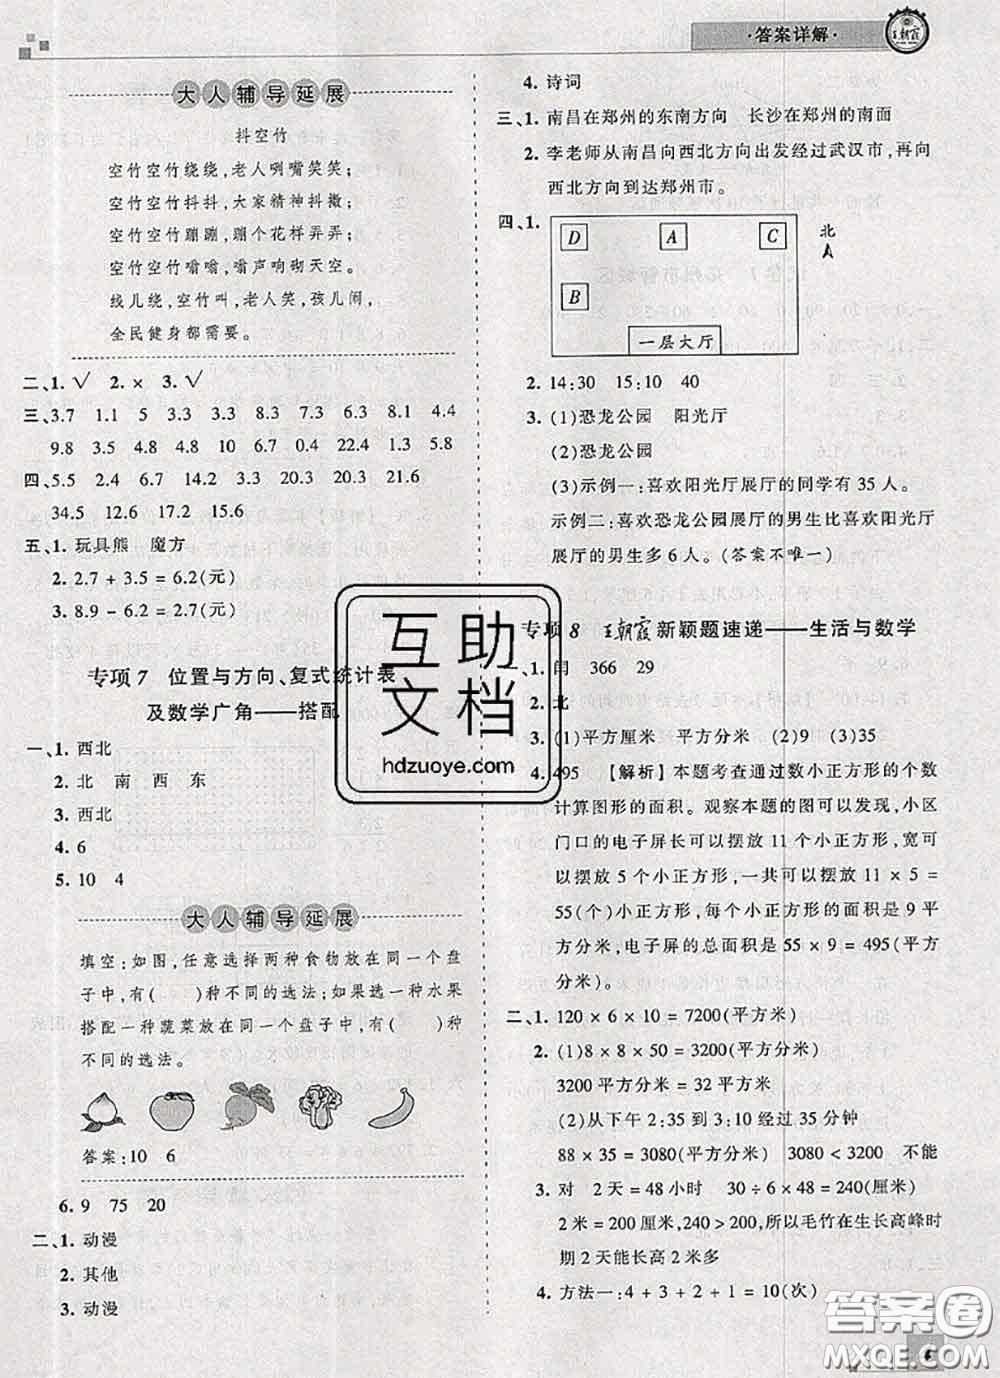 ·答案详解·
王朝霞
大人辅导延展
抖空竹
空竹空竹绕绕,老人咧嘴笑笑;
空竹空竹抖抖,大家精神抖擞;
空竹空竹蹦蹦,各种花样弄弄;
空竹空竹嗡嗡,嗡声响彻天空。
线儿绕,空竹叫,老人笑,孩儿闹,
全民健身都需要。
二、1. √ 2. × 3. √
三、3.7 1.1 5 3.3 3.3 8.3 7.3 6.3 8.1 4.4
9.8 3.5 4.8 4.8 10 6.7 0.4 22.4 1.3 5.8
四、5.5 2.4 6.7 14.2 3.3 20.3 16.2 21.6
34.5 12.6 17.2 15.6
五、1. 玩具熊 魔方
2. 2.7 + 3.5 = 6.2(元)
3. 8.9 - 6.2 = 2.7(元)
专项7 位置与方向、复式统计表
及数学广角——搭配
一、1. 西北
2. 北 南 西 东
3. 西北
4. 6
5. 10 4
大人辅导延展
填空:如图,任意选择两种食物放在同一个盘
子中,有( )种不同的选法;如果选一种水果
搭配一种蔬菜放在同一个盘子中,有( )种
不同的选法。
答案:10 6
6. 9 75 20
二、1. 动漫
2. 其他
3. 动漫
4. 诗词
三、1. 南昌在郑州的东南方向 长沙在郑州的南面
2. 李老师从南昌向西北方向出发经过武汉市,再向
西北方向到达郑州市。
四、1.
D A C 北
B
一层大厅
2. 14:30 15:10 40
3. (1)恐龙公园 阳光厅
(2)恐龙公园
(3)示例一:喜欢阳光厅展厅的同学有 35 人。
示例二:喜欢恐龙公园展厅的男生比喜欢阳光厅
展厅的男生多 6 人。(答案不唯一)
专项8 王朝霞新颖题速递——生活与数学
一、1. 闰 366 29
2. 北
3. (1)平方厘米 平方分米 (2)9 (3)35
4. 495 【解析】本题考查通过数小正方形的个数
计算图形的面积。观察本题的图可以发现,小区
门口的电子屏长可以摆放 11 个小正方形,宽可
以摆放 5 个小正方形,一共可以摆放 11 × 5 =
55(个)小正方形,每个小正方形的面积是 9 平
方分米,电子屏的总面积是 55 × 9 = 495(平方
分米)。
二、1. 120 × 6 × 10 = 7200(平方米)
2. (1)8 × 8 × 50 = 3200(平方分米)
3200 平方分米 = 32 平方米
(2)从下午 2:35 到 3:10 经过 35 分钟
88 × 35 = 3080(平方分米) 3080 < 3200 不能
3. 对 2 天 = 48 小时 30 ÷ 6 × 48 = 240(厘米)
2 米 = 200 厘米,240 > 200,所以毛竹在生长高峰时
期 2 天能长高 2 米多
4. 方法一:4 + 3 + 2 + 1 = 10(次)
互助
文档
hdzuoye.com
答案圈
MXQE.COM